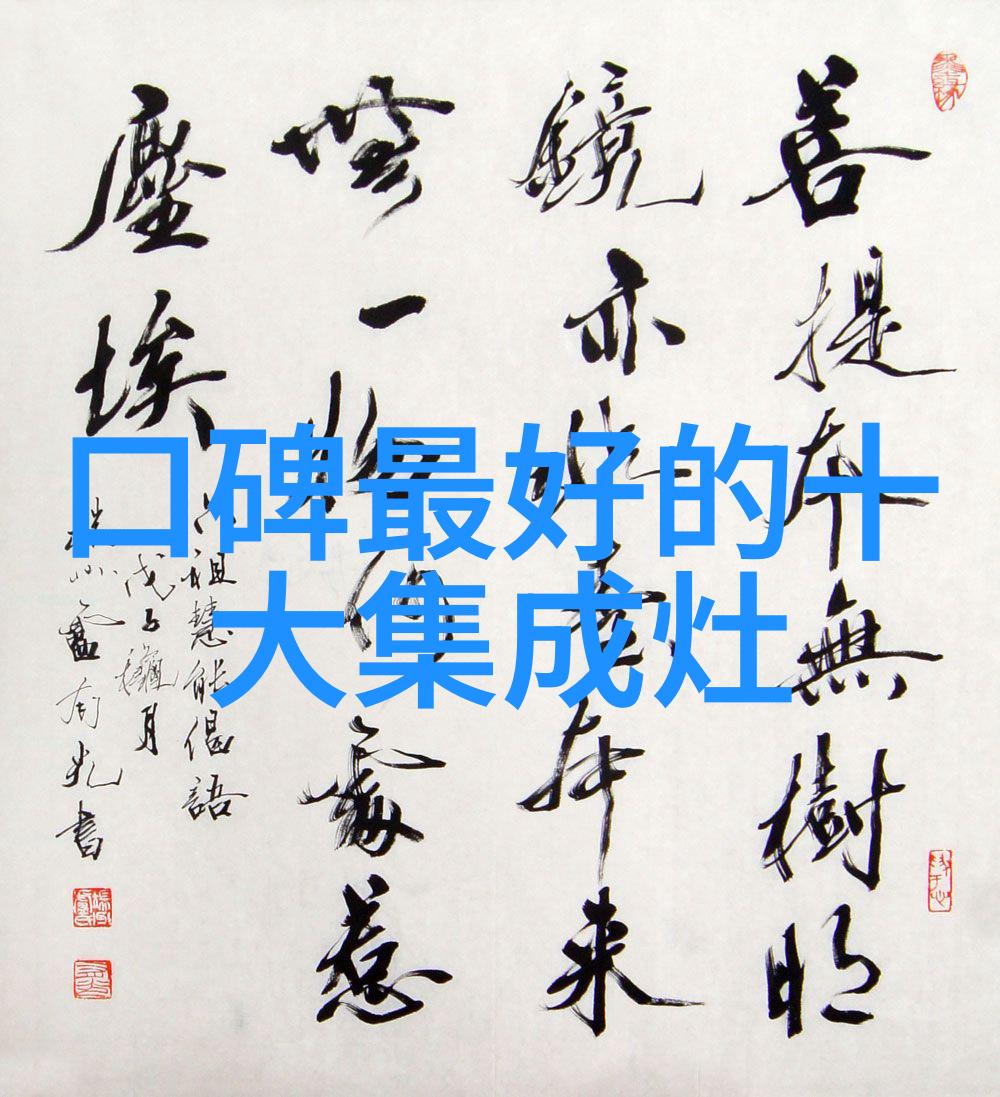 口碑最好的十
大集成灶
菩提本無樹明
鏡亦非臺本来
無一物何處惹
塵埃
六祖慧能偈語
戊子穐月
有光書